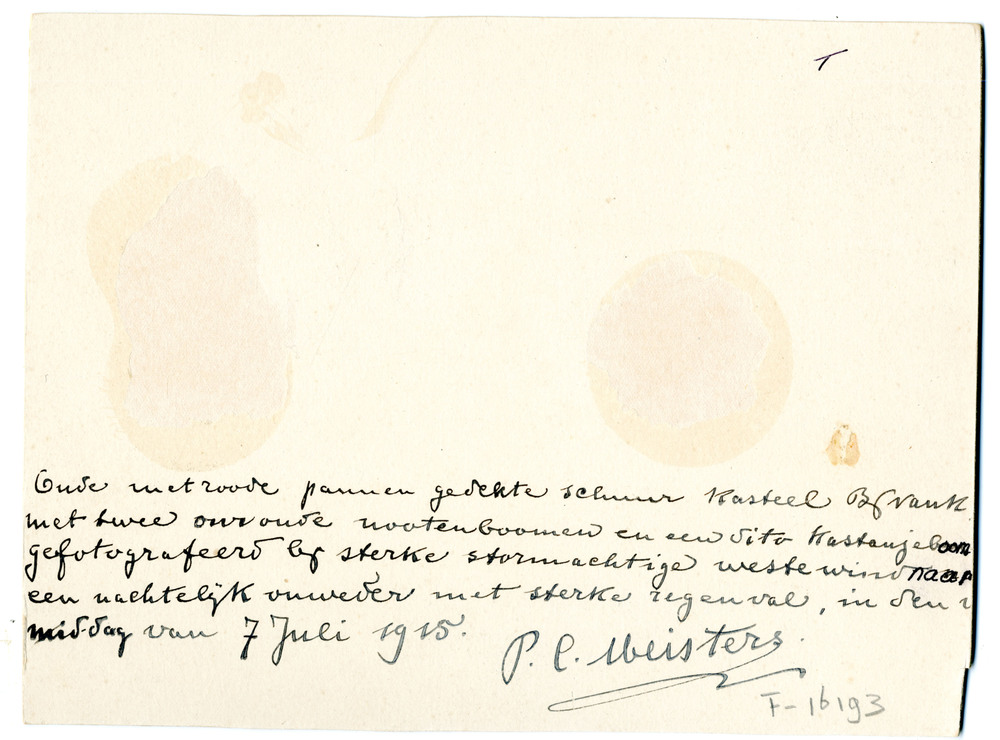 Oude met roode pannen gedekte schuur Kasteel Bÿvank
met twee overoude nootenboomen en een dito kastanjeboom
gefotografeerd bÿ sterke stormachtige westewind naar
een nachtelÿk onweder met sterke regenval, in den
middag van 7 Juli 1915.
P. C. Meisters.
F-16193